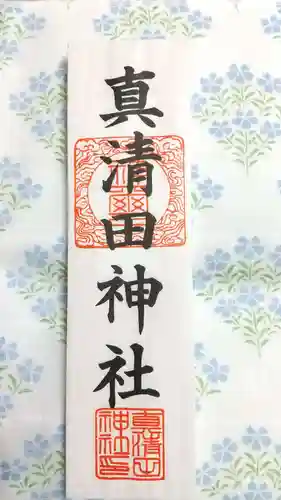 真清田神社
真清田
神社印